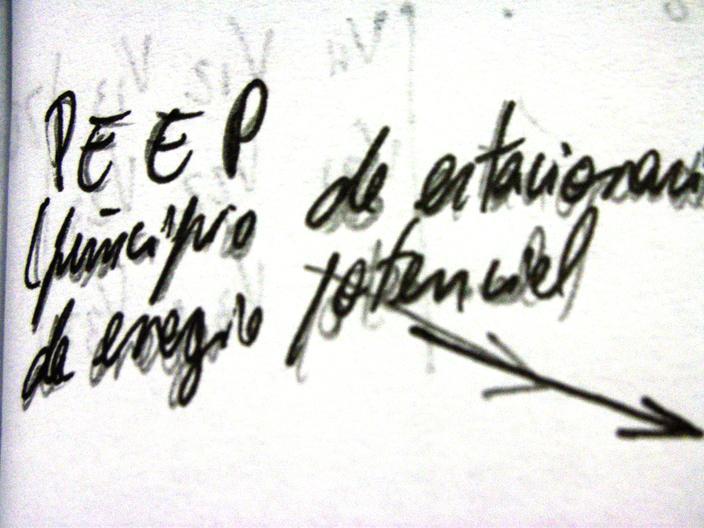 PEEP
(principio de estacionari
de energia potencial